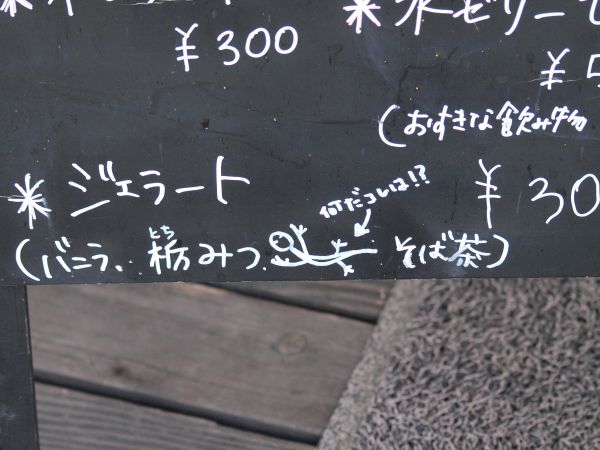 ¥300
*水ゼリー
¥
(おすきな飲み物
*ジェラート ¥30
何だコレは!?
(バニラ、栃みつ、 そば茶)
とち